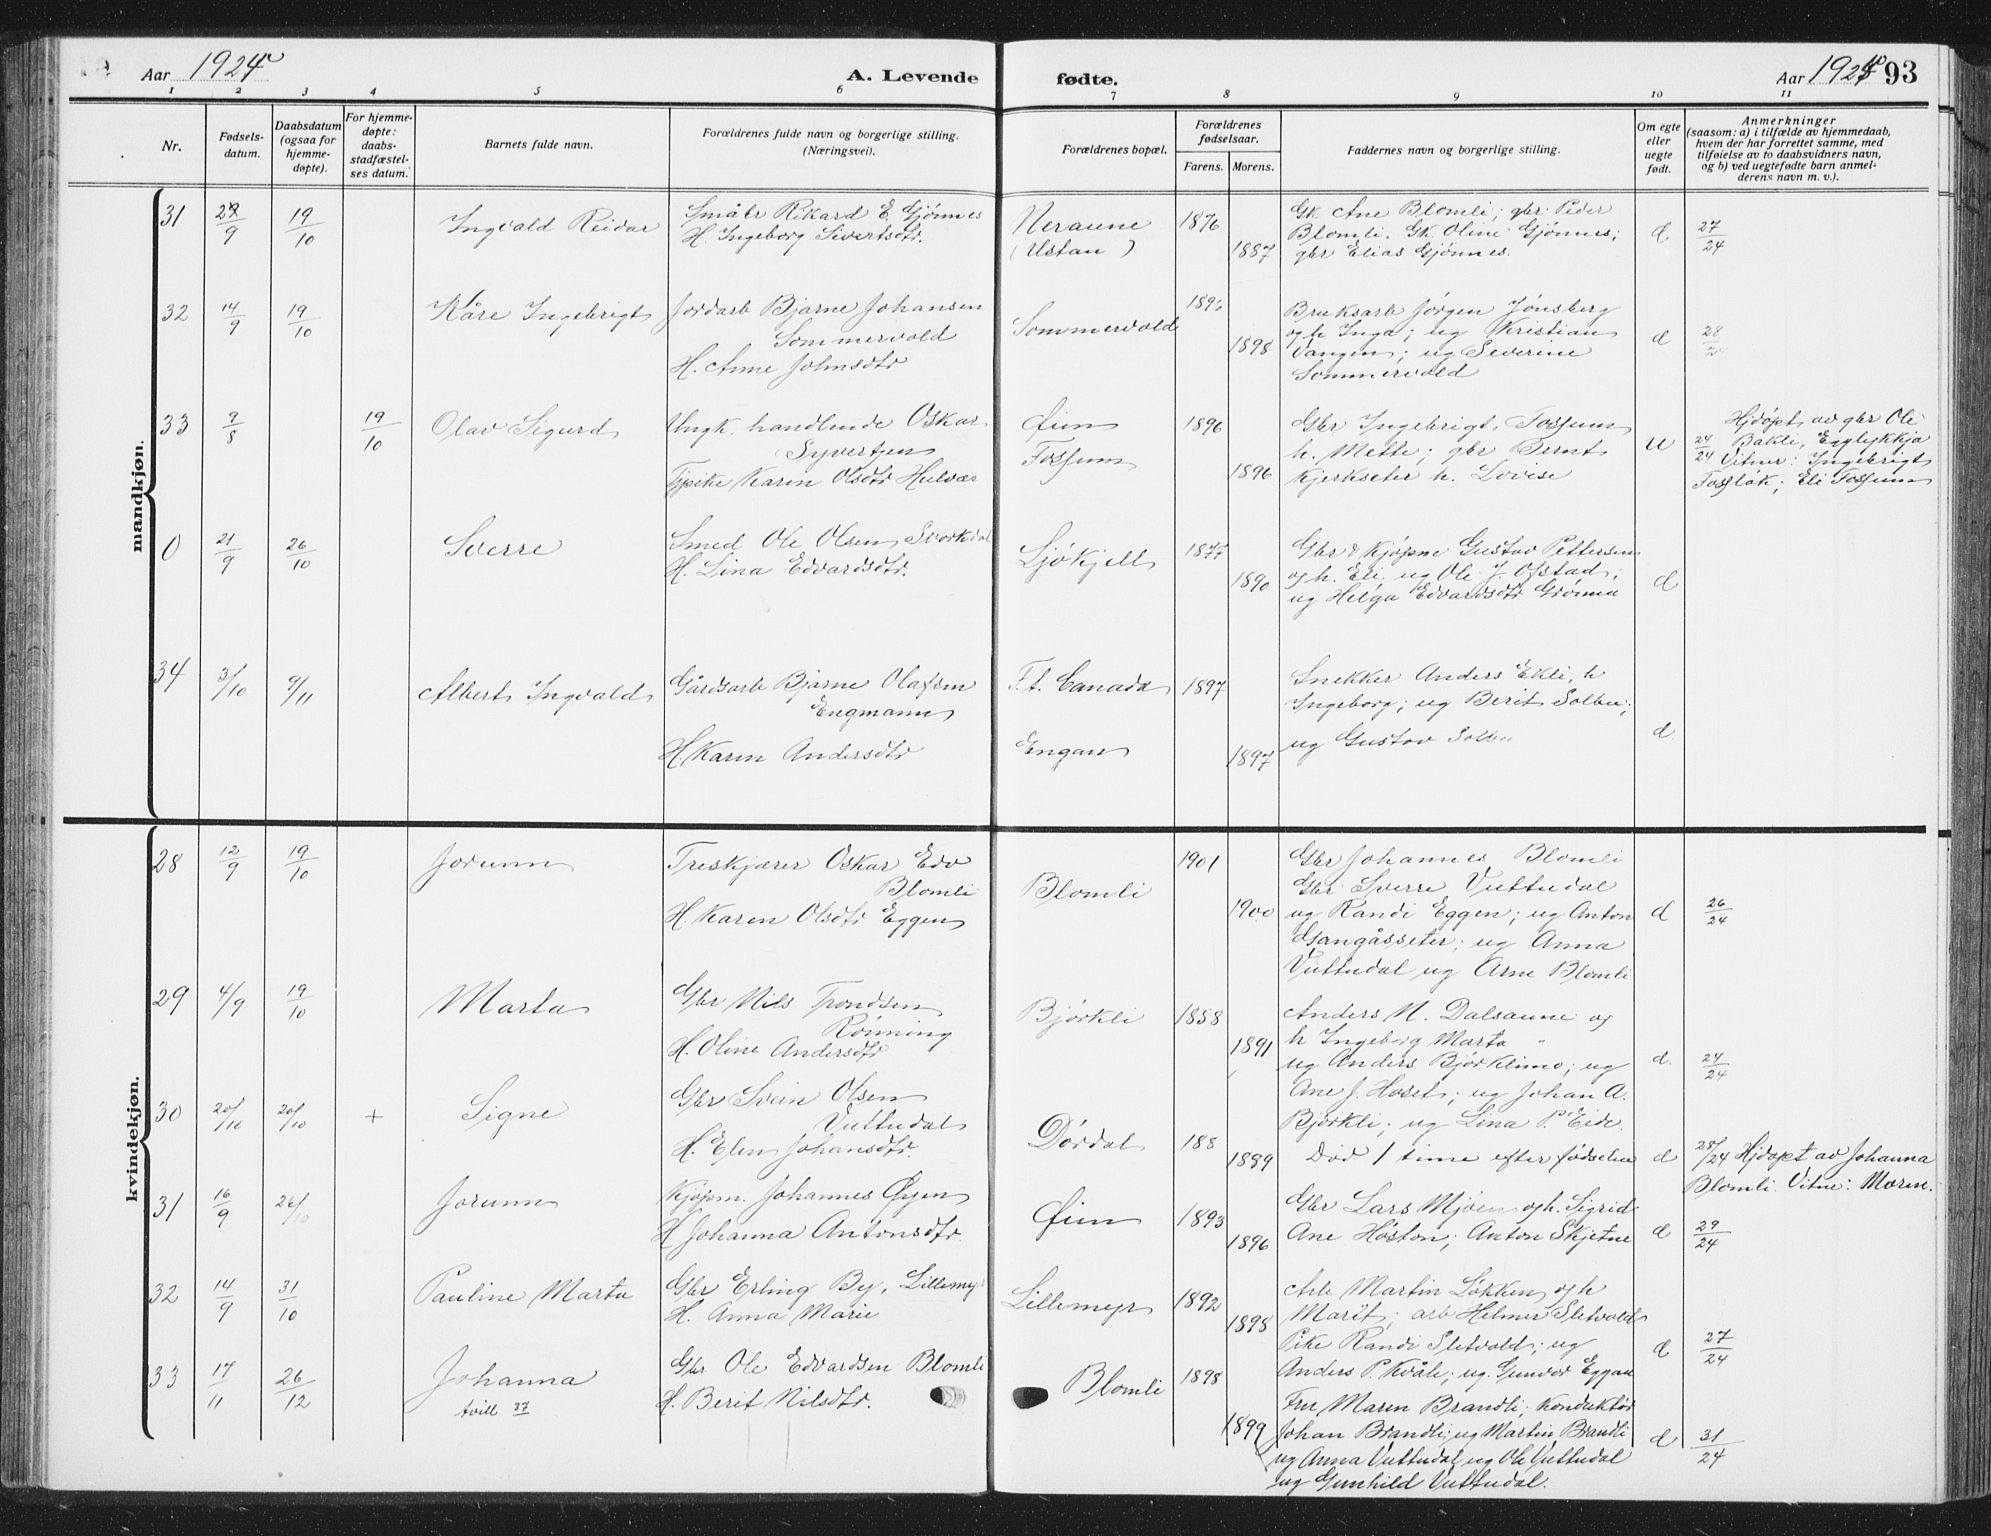 Aar 1924
A. Levende fødte.
Aar 1924 93
1 2 3 4 5 6 7 8 9 10 11
Nr.
Fødsels-
datum.
Daabsdatum
(ogsaa for
hjemme-
døpte).
For hjemme-
døpte:
daabs-
stadfæstel-
ses datum.
Barnets fulde navn.
Forældrenes fulde navn og borgerlige stilling.
(Næringsvei).
Forældrenes bopæl.
Forældrenes
fødselsaar.
Farens. Morens.
Faddernes navn og borgerlige stilling.
Om egte
eller
uegte
født.
Anmerkninger
(saasom: a) i tilfælde av hjemmedaab,
hvem der har forrettet samme, med
tilføielse av to daabsvidners navn,
og b) ved uegtefødte barn anmel-
derens navn m. v.).
mandkjøn.
31 27/9 19/10 Ingvald Reidar
Småbr Rikard E. Gjønnes
H. Ingeborg Sivertsdtr.
Neraune
(Ustan)
1876
1887
Gk. Ane Blomli; gbr. Peder
Blomli. Gk. Oline Gjønnes;
gbr Elias Gjønnes.
d 27/24
32 14/9 19/10 Kåre Ingebrigt
Jordarb Bjarne Johansen
Sommervold
H. Anne Johnsdtr
Sommervold
1898
Bruksarb Jørgen Jønsberg
og h Inga; ug Kristian
Vangen; ug Severine
Sommervold
d 28/24
33 9/8 19/10 Olav Sigurd
Ungk. handlende Oskar
Syvertsen
Tjpike Karen Olsdtr Hulvær
Øien
Fossum
1896
1896
Gbr Ingebrigt Fossum
h. Mette; gbr Bernt
Kjerkseter h. Lovise
u 24/24
Hjdøpt av gbr Ole
Bakli, Egglykkja
Vitner: Ingebrigt
Fossløk; Eli Fossum
0 21/9 26/10 Sverre
Smed Ole Olsen Svorkdal
H. Lina Edvardsdtr.
Ljøkjell
1877
1890
Gbr & kjøpm Gustav Pettersen
og h. Eli. ug Ole J. Ofstad;
ug Helga Edvardsdtr Grønna
d
34 3/10 9/11 Albert Ingvald
Gårdsarb Bjarne Olafsen
Engmann
H. Karen Andersdtr
F.t. Canada
Engan
1897
1897
Snekker Anders Ekli, h
Ingeborg; ug Berit Solbu;
ug Gustav Solbu
d.
kvindekjøn.
28 12/9 19/10 Jorunn
Treskjærer Oskar Edv
Blomli
H Karen Olsdtr Eggen
Blomli
1901
1900
Gbr Johannes Blomli
Gbr Sverre Vuttudal
ug Randi Eggen; ug Anton
Gangåsseter; ug Anna
Vuttudal ug Arne Blomli
d 26/24
29 4/9 19/10 Marta
Gbr Nils Trondsen
Rønning
H. Oline Andersdtr
Bjørkli
1858
1891
Anders N. Dalsaune og
h Ingeborg Marta "
ug Anders Bjørklimo; ug
Ane J. Hoset; ug Johan A.
Bjørkli; ug Lina P. Eide.
d. 24/24
30 20/10 20/10 + Signe
Gbr Svein Olsen
Vuttudal
H. Elen Johansdtr.
Dørdal
188
1889
Død 1 time efter fødselen
d 28/24 Hjdøpt av Johanna
Blomli. Vitne: Moren.
31 16/9 26/10 Jorunn
Kjøpm. Johannes Øyen
H Johanna Antonsdtr.
Øien
1893
1896
Gbr Lars Mjøen og h. Sigrid
Ane Høston; Anton Skjetne
d 29/24
32 14/9 31/10 Pauline Marta
Gbr Erling By, Lillemyr
H. Anna Marie
Lillemyr
1892
1898
Arb Martin Løkken og h
Marit; arb Helmer Sletvold
Pike Randi Sletvold; ug
Anders P. Kvåle; ug. Gunvor Eggan
d 27/24
33 17/11 26/12 Johanna
tvill 37
Gbr Ole Edvardsen Blomli
H. Berit Nilsdtr.
Blomli
1898
1899
Fru Maren Brandli; Konduktør
Johan Brandli; ug Martin Brandli
ug Anna Vuttudal, ug Ole Vuttudal
ug Gunhild Vuttudal.
d 31/24